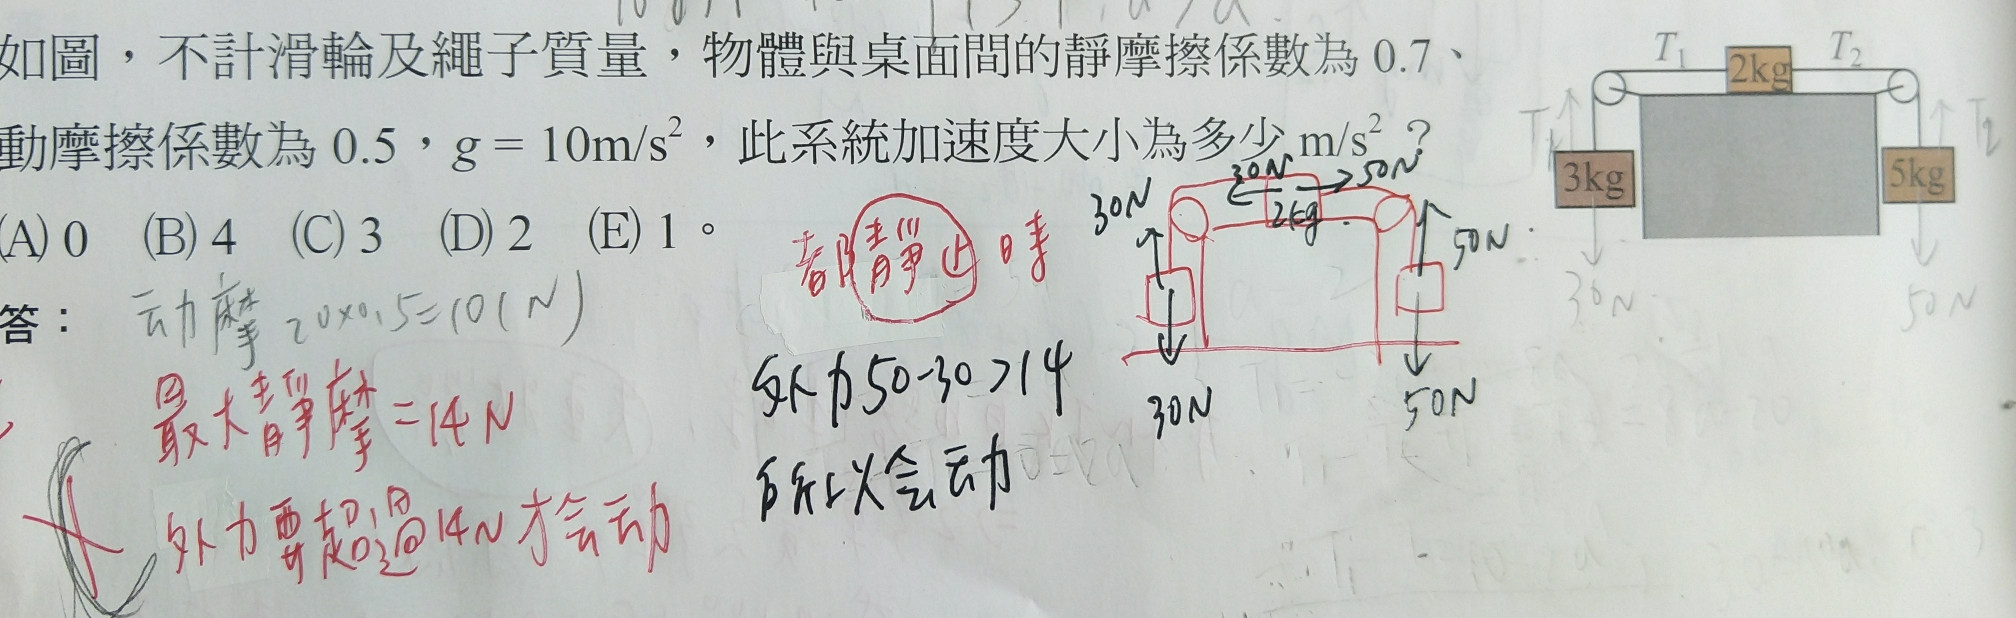 如圖，不計滑輪及繩子質量，物體與桌面間的靜摩擦係數為 0.7、
動摩擦係數為 0.5，g = 10m/s²，此系統加速度大小為多少 m/s²？
(A) 0 (B) 4 (C) 3 (D) 2 (E) 1。
答：
动摩 20×0.5=10(N)
最大靜摩=14N
外力要超過14N才会动
都靜止時
外力50-30>14
所以会动
30N 50N
2kg
30N
50N
30N
50N
T₁ 2kg T₂
3kg 5kg
30N 50N